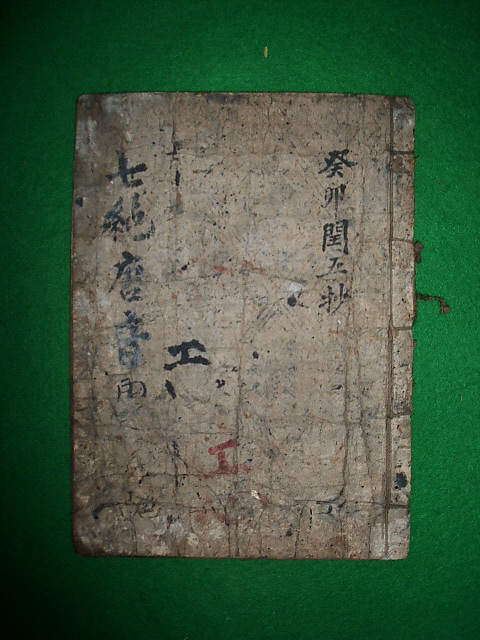 癸卯閏五抄
工
工
七絶唐音